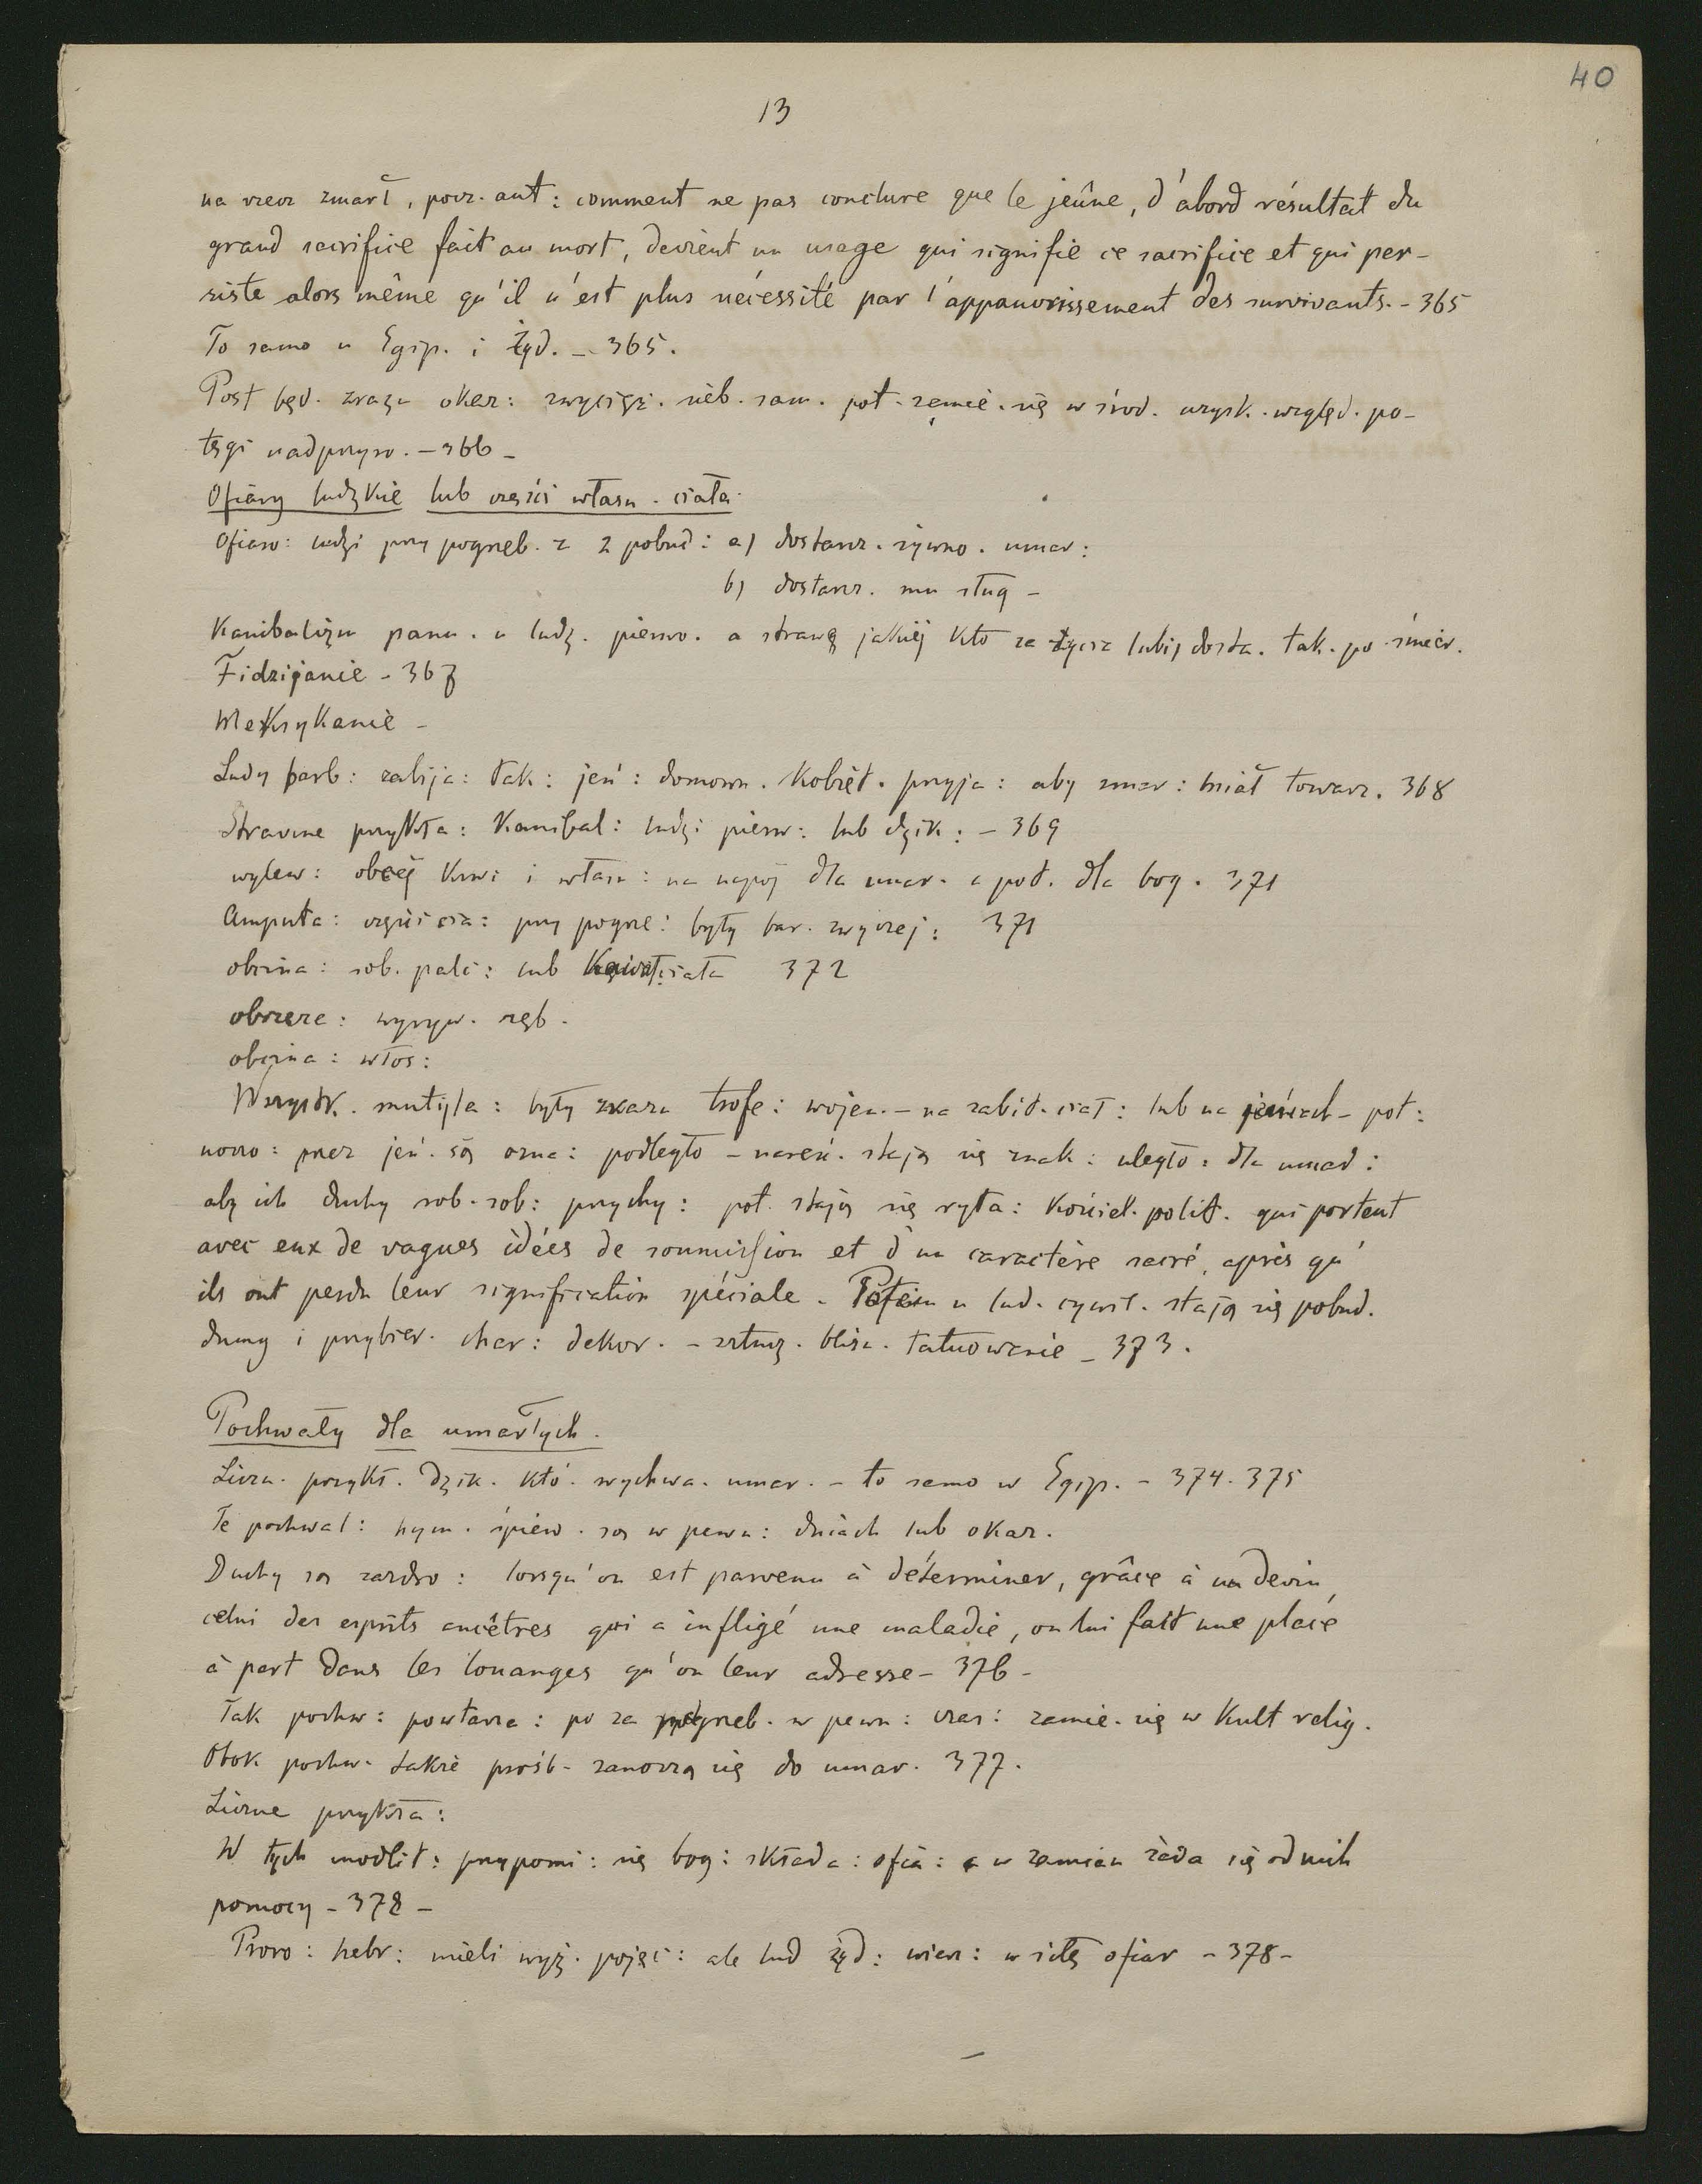 40
13
na rzecz zmarł, powr. aut: comment ne pas conclure que le jeûne, d'abord résultat du
grand sacrifice fait au mort, devient un usage qui signifie ce sacrifice et qui per-
siste alors même qu'il n'est plus nécessité par l'appauvrissement des survivants. - 365
To samo u Egip. i Żyd. - 365.
Post będ. zrazu okaz: zwycięz. nieb. sam. pot. zamie. się w środ. uzysk. względ. po-
tęgi nadprzyr. - 366 -
Ofiary ludzkie lub części własn. ciała.
Ofiaro: ludzi przy pogrzeb. z 2 pobud: a) dostarcz. żywno. umar:
b) dostarcz. mu sług -
Kanibalizm panu. u ludz. pierwo. a strawę jakiej kto za życia lubił dosta. tak. po śmier.
Fidzijanie - 367
Meksykanie -
Ludy barb: zabija: tak: jeń: domown. kobiet. przyja: aby zmar: miał towarz. 368
Straszne przykła: Kanibal: ludzi pierw: lub dzik: - 369
wylew: obcej krwi i własn: na napój dla umar. a pot. dla bog. 371
Amputa: części cia: przy pogrze: były bar. zwyczej: 371
obcina: sob. palc: lub ciała 372
obrzeze: wyryw. zęb.
obcina: włos:
Wszystk. mutyla: były zrazu trofe: wojen. - na zabit. ciał: lub na jeńcach - pot:
noszo: przez jeń. są ozna: podległo - nareszc. stają się znak: uległo: dla umar:
aby ich duchy sob. zob: przychy: pot. stają się ryta: kościel. polit. qui portent
avec eux de vagues idées de soumission et d'un caractère sacré, après qu'
ils ont perdu leur signification spéciale. Potem u lud. cywil. stają się pobud.
dumy i przybier. char: dekor. - sztucz. blizn. tatuowanie - 373.
Pochwały dla umarłych.
Liczn. przykł. dzik. któ. wychwa. umar. - to samo w Egip. - 374. 375
Te pochwal: hym. śpiew. są w pewn: dniach lub okaz.
Duchy są zazdro: lorsqu'on est parvenu à déterminer, grâce à un devin,
celui des esprits ancêtres qui a infligé une maladie, on lui fait une place
à part dans les louanges qu'on leur adresse - 376 -
Tak pochw: powtarza: po za pogrzeb. w pewn: czas: zamie. się w kult relig.
Obok pochw. także prośb. zanoszą się do umar. 377.
Liczne przykła:
W tych modlit: przypomi: się bog: składa: ofia: a w zamian żąda się od nich
pomocy - 378 -
Proro: hebr: mieli wyż. pojęc: ale lud żyd: wierz: w siłę ofiar - 378 -